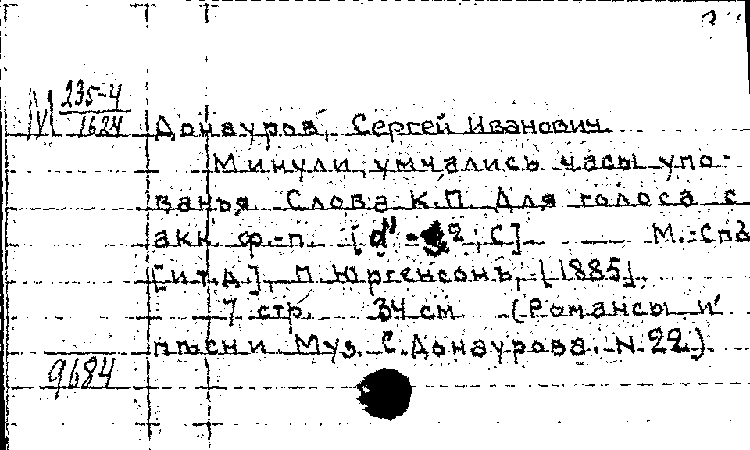 М 235-4
1624
Донауров, Сергей Иванович.
Минули, умчались часы упо-
ванья. Слова К.П. Для голоса с
акк. ф.-п. 2; С]. М.-Спб
[и т.д.], П. Юргенсонъ, [1885].
7 стр. 34 см (Романсы и
пѣсни Муз. С. Донаурова. N. 22.)
9684